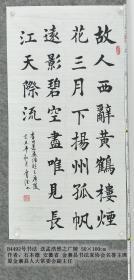 故人西辭黄鶴樓煙
花三月下揚州孤帆
遠影碧空盡唯見長
江天際流
D4492号书法 送孟浩然之广陵 50×100cm
作者：石本德 安徽省 金寨县书法家协会名誉主席
原金寨县人大常委会副主任